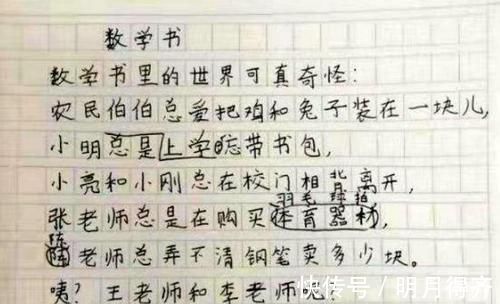 数学书
数学书里的世界可真奇怪：
农民伯伯总爱把鸡和兔子装在一块儿，
小明总是上学忘带书包，
小亮和小刚总在校门相背离开，
羽毛球拍
张老师总是在购买体育器材，
陈老师总弄不清钢笔卖多少块。
咦？王老师和李老师呢？
快传号/明月得齐